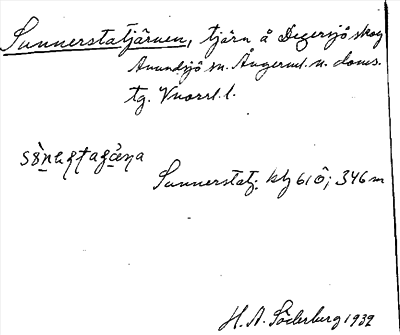 Sunnerstatjärnen, tjärn å Degersjö skog
Anundsjö sn. Ångerml. n. doms.
tg. Vnorrl. l.
Sunnerstatj. kbl 61 Ö; 346 m
H. A. Söderberg 1932